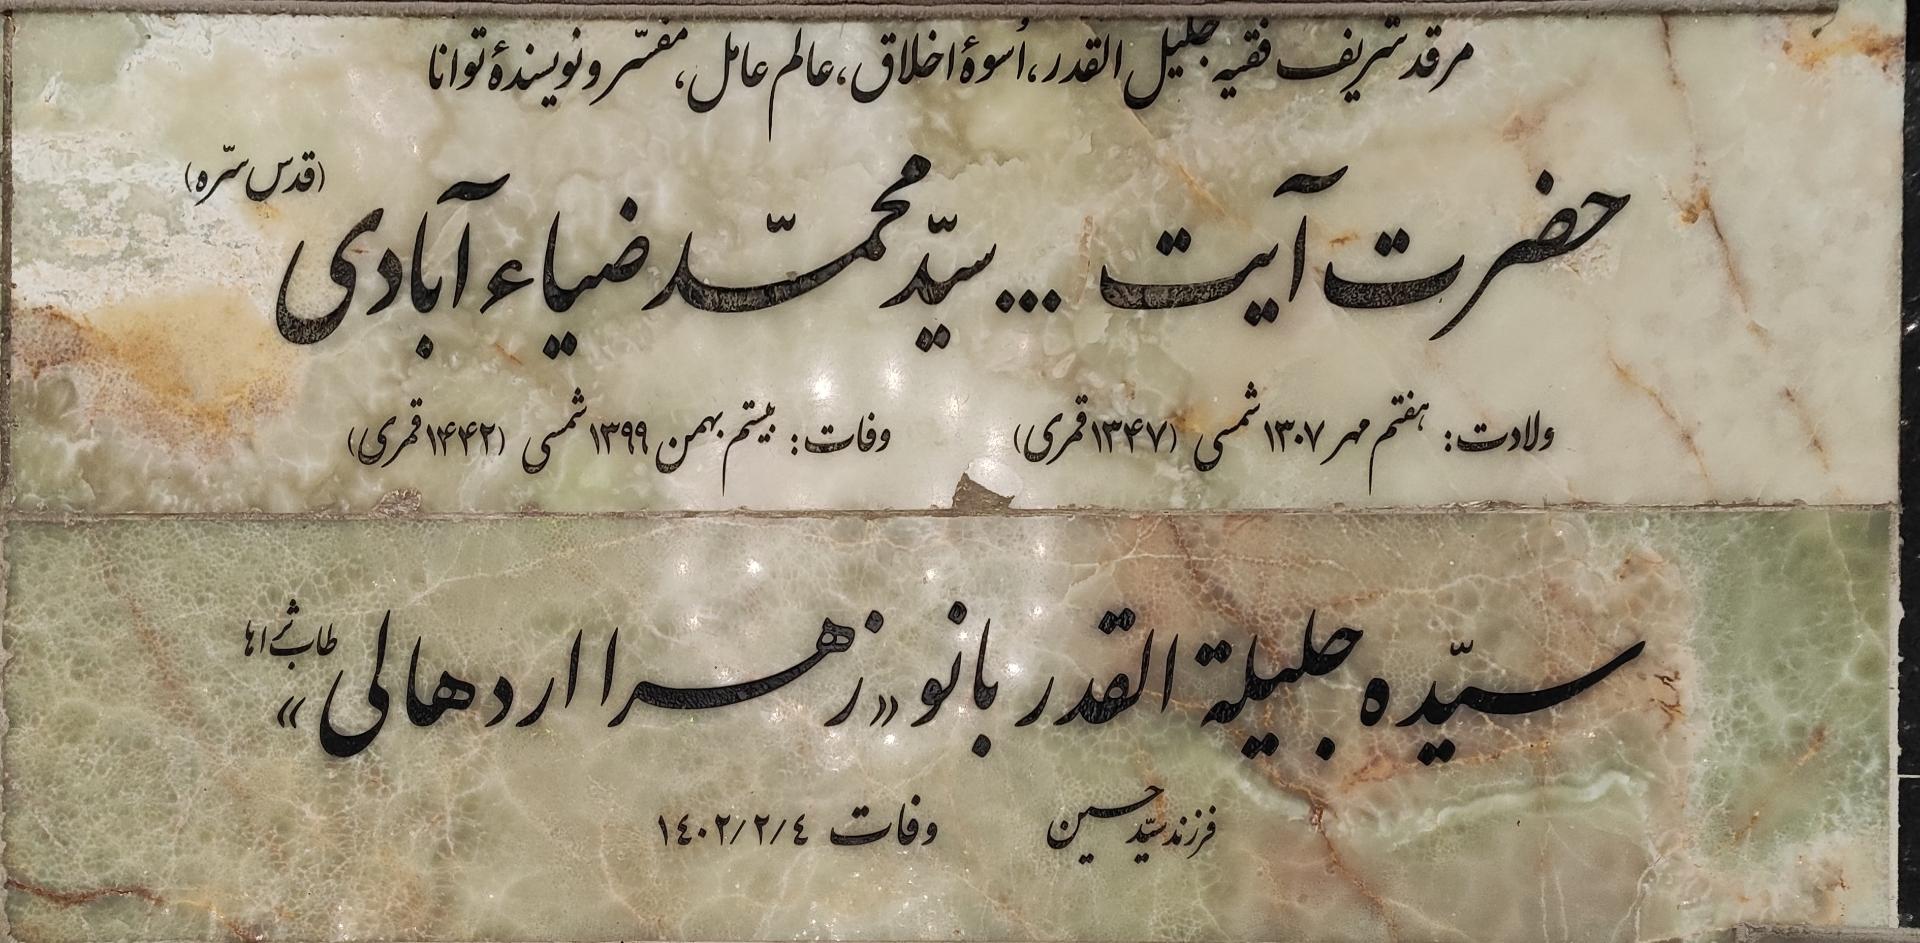 مرقد شریف فقیه جلیل القدر، اُسوهٔ اخلاق، عالم عامل، مفسّر و نویسندهٔ توانا
حضرت آیت ... سیّد محمّد ضیاء آبادی (قدس سّره)
ولادت: هفتم مهر ۱۳۰۷ شمسی (۱۳۴۷ قمری) وفات: بیستم بهمن ۱۳۹۹ شمسی (۱۴۴۲ قمری)
سیّده جلیلة القدر بانو «زهرا اردهالی» طاب ثراها
فرزند سیّد حسین وفات ١٤٠٢/٢/٤